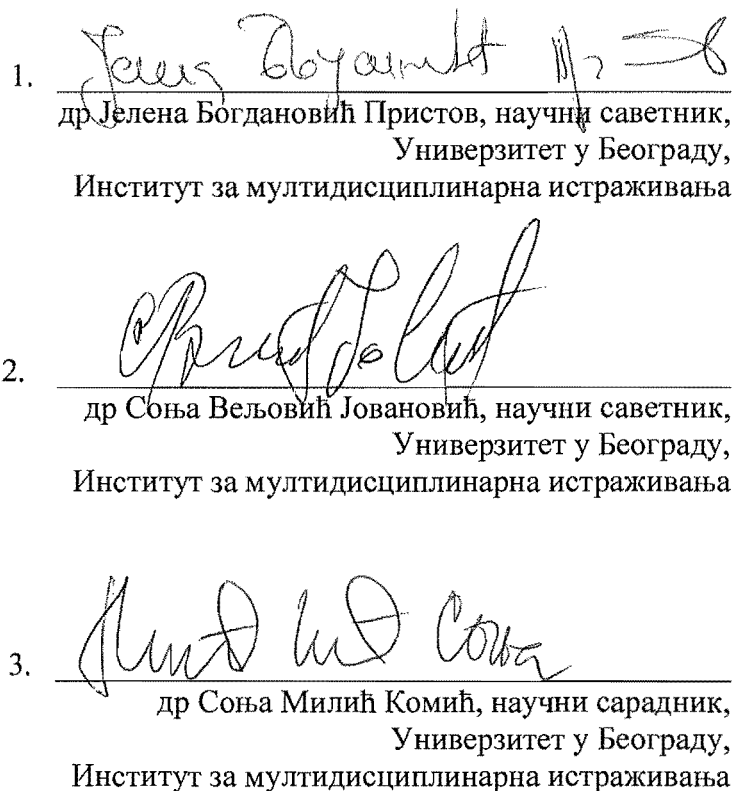 1.
др Јелена Богдановић Пристов, научни саветник,
Универзитет у Београду,
Институт за мултидисциплинарна истраживања
2.
др Соња Вељовић Јовановић, научни саветник,
Универзитет у Београду,
Институт за мултидисциплинарна истраживања
3. Соња
др Соња Милић Комић, научни сарадник,
Универзитет у Београду,
Институт за мултидисциплинарна истраживања